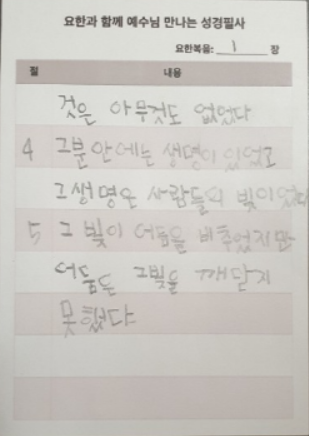 요한과 함께 예수님 만나는 성경필사
요한복음: 1 장
절 내용
것은 아무것도 없었다
4 그분 안에는 생명이 있었고
그 생명은 사람들의 빛이었다
5 그 빛이 어둠을 비추었지만
어둠은 그빛을 깨닫지
못했다